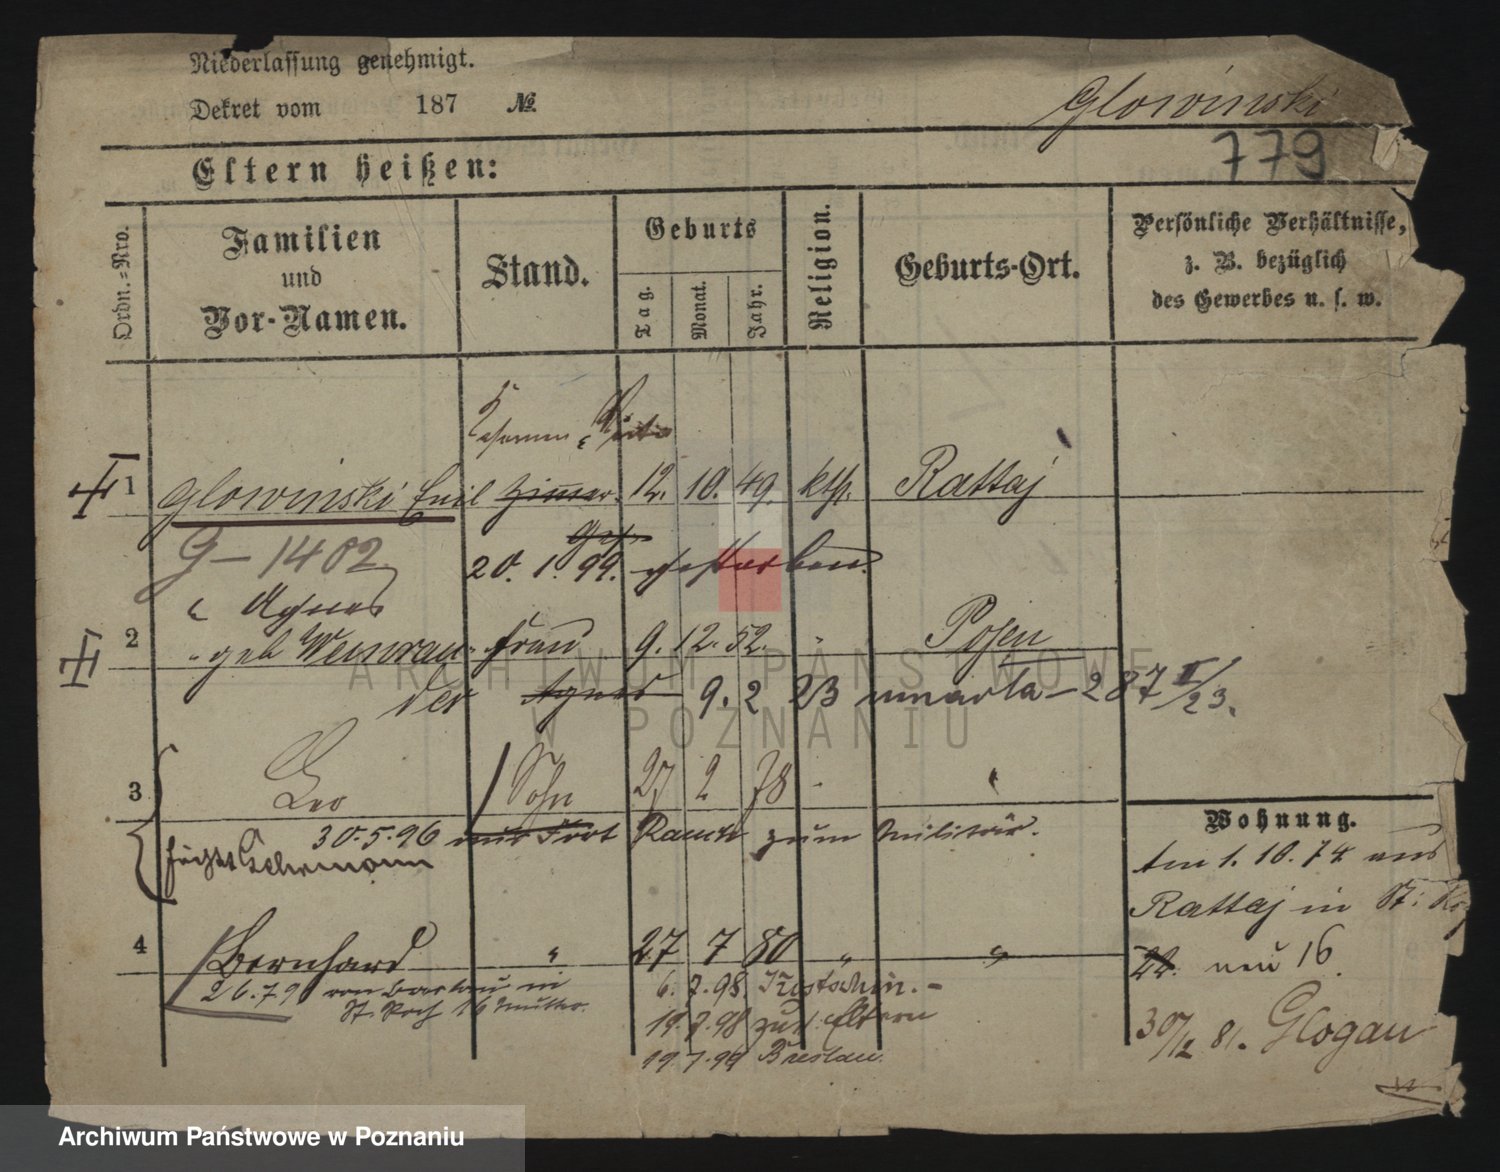 Niederlassung genehmigt.
Dekret vom 187 №
Glowinski
779
Eltern heißen:
Ordn.-Nro.
Familien
und
Vor-Namen.
Stand.
Geburts
Tag.
Monat.
Jahr.
Religion.
Geburts-Ort.
Persönliche Verhältnisse,
z. B. bezüglich
des Gewerbes u. s. w.
1 Glowinski Emil Zimmer. 12. 10. 49. kth. Rattaj
G – 1402
20. 1. 99. gestorben.
" Agnes
2 " geb Weinrau Frau 9. 12. 52. " Posen
Agnes 9. 2 23 umarła – 287 I/23.
3 Leo Sohn 27 2 78 "
30.5.96 Rauch zum Militär.
Wohnung.
Am 1. 10. 74 aus
Rattaj in St:
44. neu 16
4 Bernhard " 27 7 80 " "
26.7.9 von in
St. Roch 16 Mutter.
6. 2. 98
19. 2. 98 zu d. Eltern
19. 1. 99 Breslau.
30/12 81. Glogau
ARCHIWUM PAŃSTWOWE
W POZNANIU
Archiwum Państwowe w Poznaniu